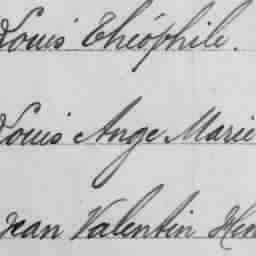 Louis Théophile.
Louis Ange Marie
Jean Valentin